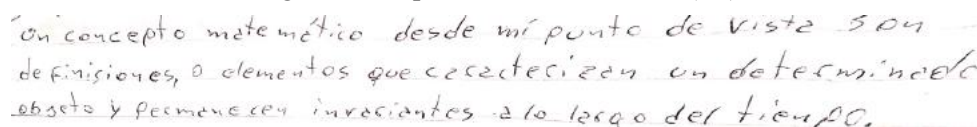 Un concepto matemático desde mi punto de vista son
definisiones, o elementos que caracterizan un determinado
objeto y permanecen invariantes a lo largo del tiempo.